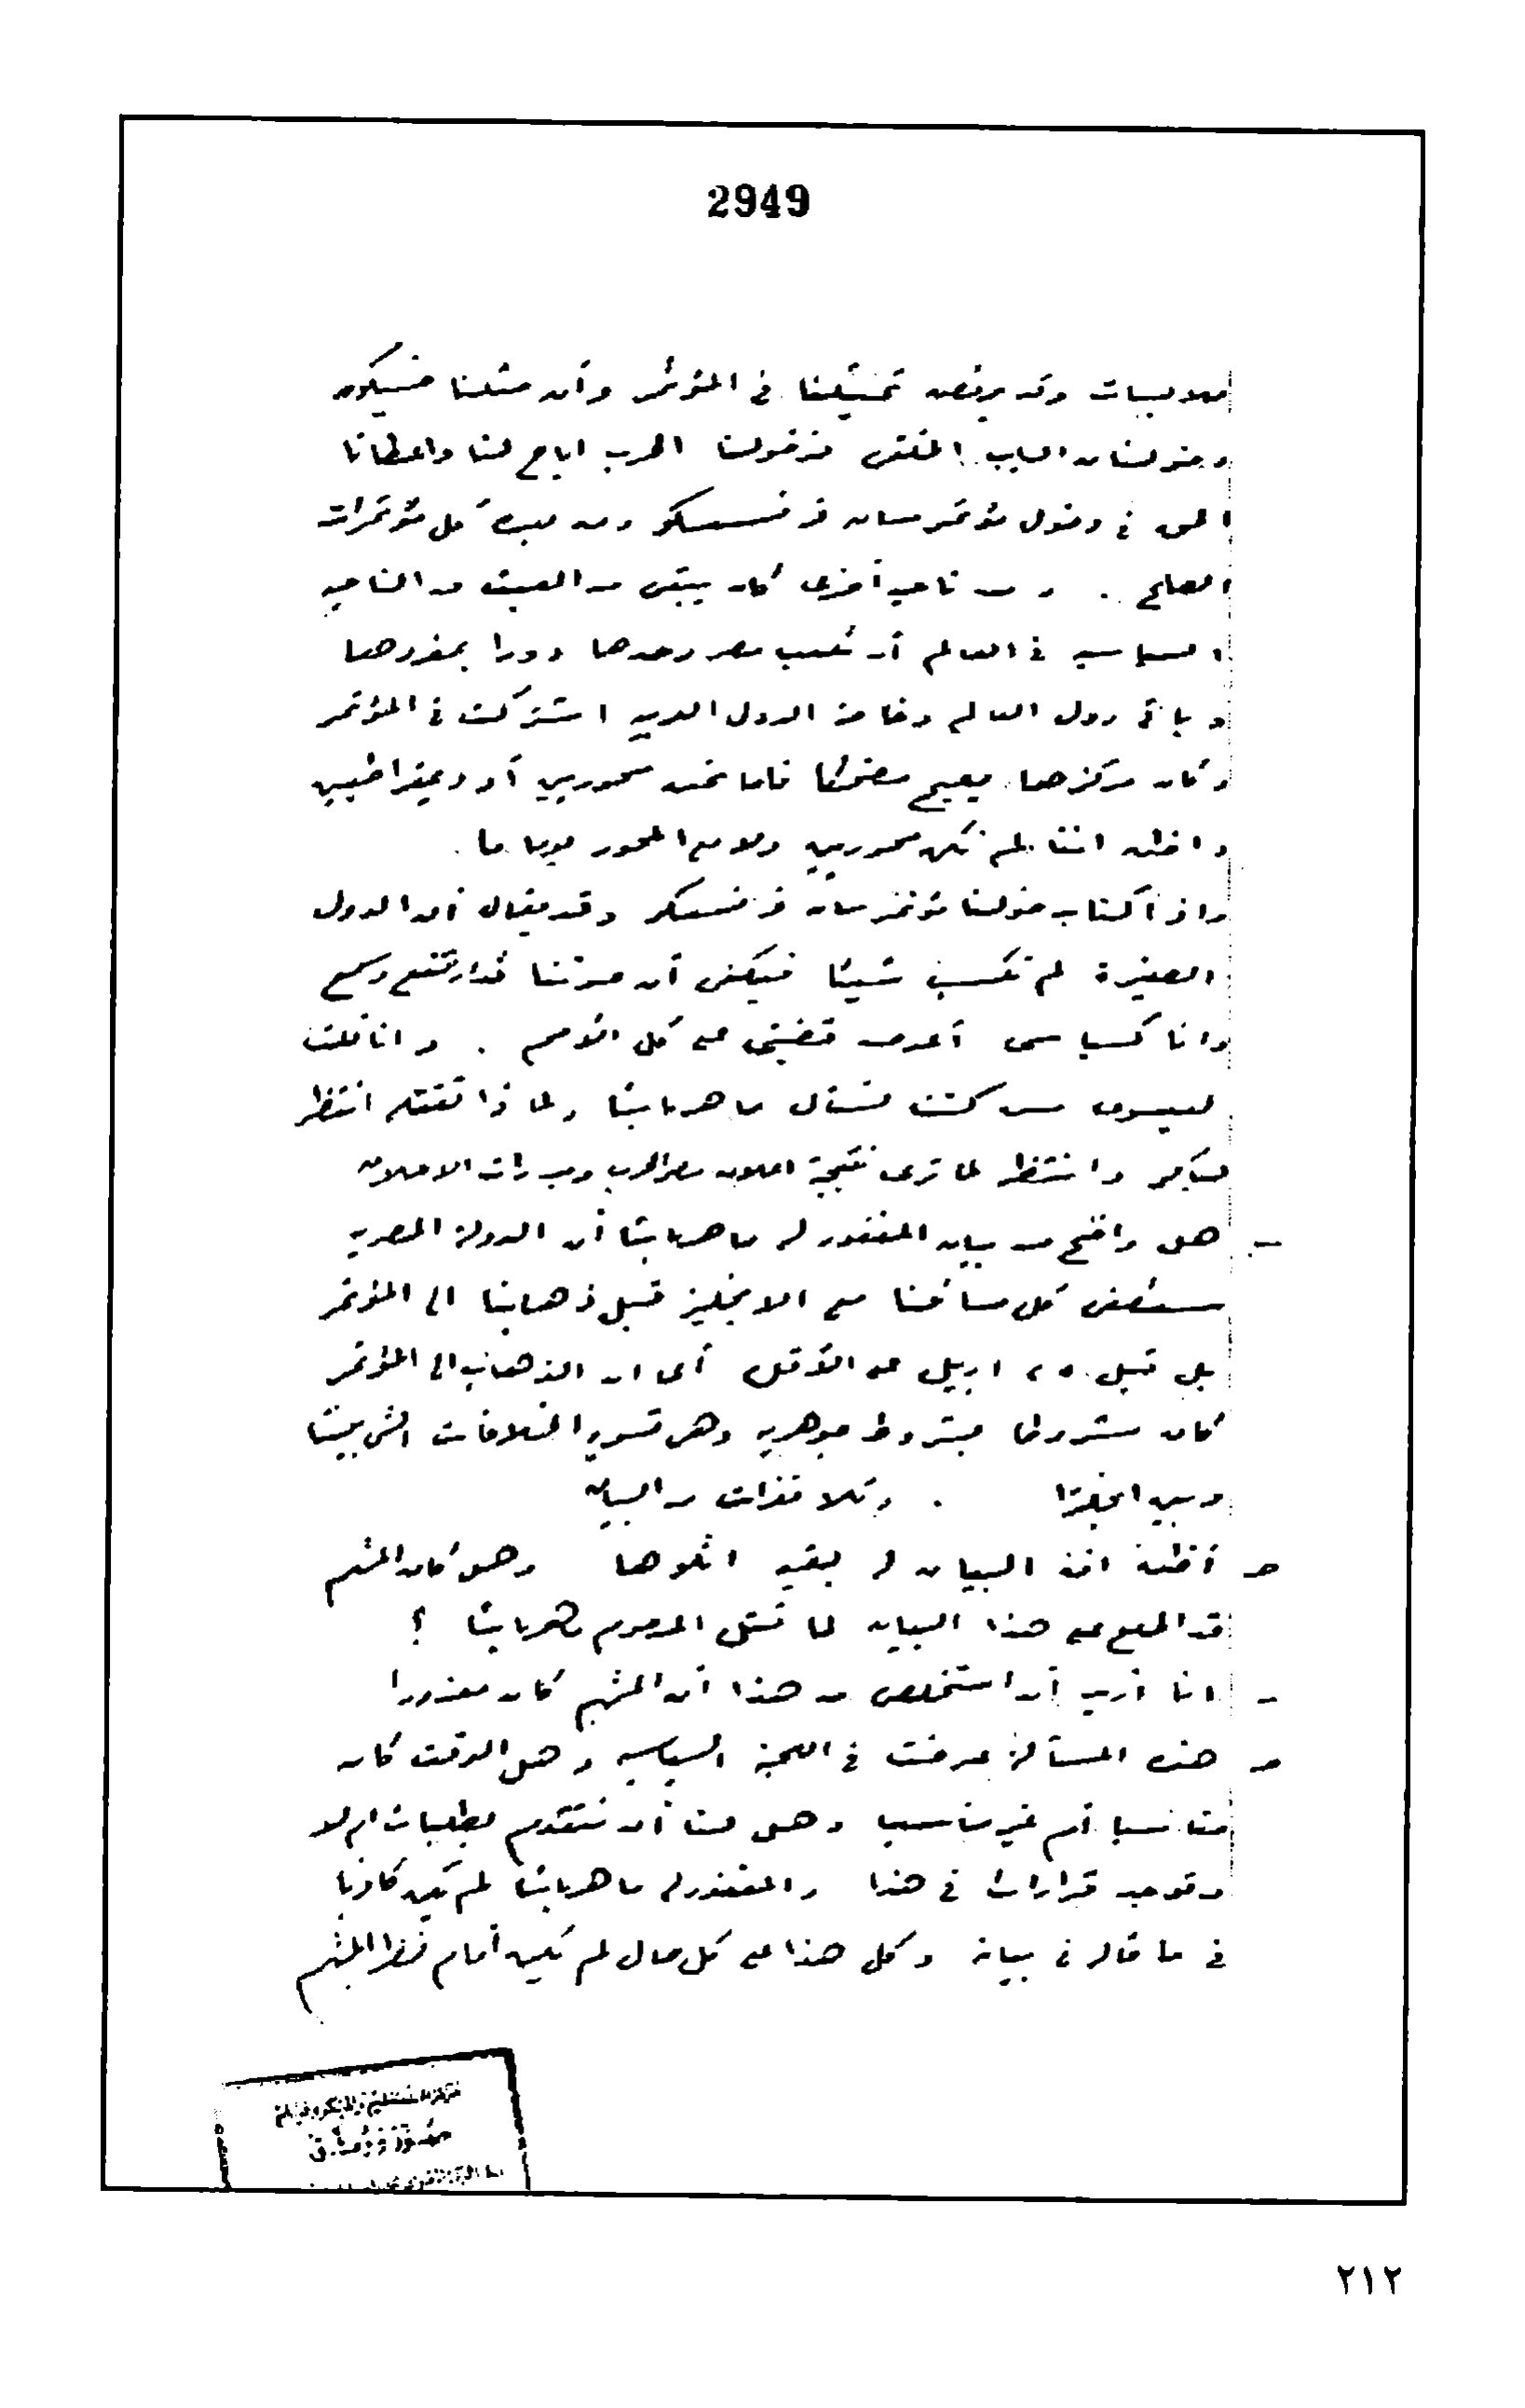 2949
ملابسات وقد يرفض تمثيلنا في المؤتمر وأن مثلنا فسيكون
دخولنا من الباب الخلفى فدخولنا الحرب اباح لنا واعطانا
الحق في دخول مؤتمر سان فرنسسكو ومن ثم كل مؤتمرات
الصلح . ومن ناحية أخرى كان يبقى من العبث من الناحية
السياسية في العالم أن تلعب مصر وحدها دورا بمفردها
وباقى دول العالم وخاصة الدول العربية اشتركت في المؤتمر
وكان مركزها يصبح مضحكا فاما نحن محوريين أو ديمقراطيين
واظن اننا لم نكن محوريين ولا مع المحور يوما ما .
واذا كان دخولنا مؤتمر سان فرنسسكو وقد يقال أن الدول
الصغيرة لم تكسب شيئا فيكفى أن صوتنا قد ارتفع وسمع
وانا كسياسى أعرض قضيتى على كل الأمم . وانا قلت
لعيسوى كنت فتقتل ماهر باشا ولماذا تقتله انتظر
وانتظر لما ترى نتيجة اعلان مصر الحرب ومبررات الاعلان
ـ هل واضح من بيان المغفور له ماهر باشا أن الدولة المصرية
ستصفى كل مسائلنا مع الانجليز قبل ذهابنا الى المؤتمر
بل قبل ٢٥ ابريل على الأقل أى ان الذهاب الى المؤتمر
كان مشروطا بشروط جوهرية وهى تسوية الخلافات التى بيننا
وبين انجلترا . وتلا فقرات من البيان
حـ أظن ان البيان له بقية اتلوها وهل كان المتهم
قد اطلع على هذا البيان لما قتل المرحوم ماهر باشا ؟
ـ انا أريد أن استخلص من هذا أن المتهم كان معذورا
حـ هذه المسألة عرضت في اللجنة السياسية وهل الوقت كان
مناسبا أم غير مناسب وهل لنا أن نتقدم بطلبات ام لا
وتوجد قرارات في هذا والمغفور له ماهر باشا لم يكن كاذبا
في ما قاله في بيانه وكل هذا على كل حال لم يكن أمام نظر المتهم
٢١٢